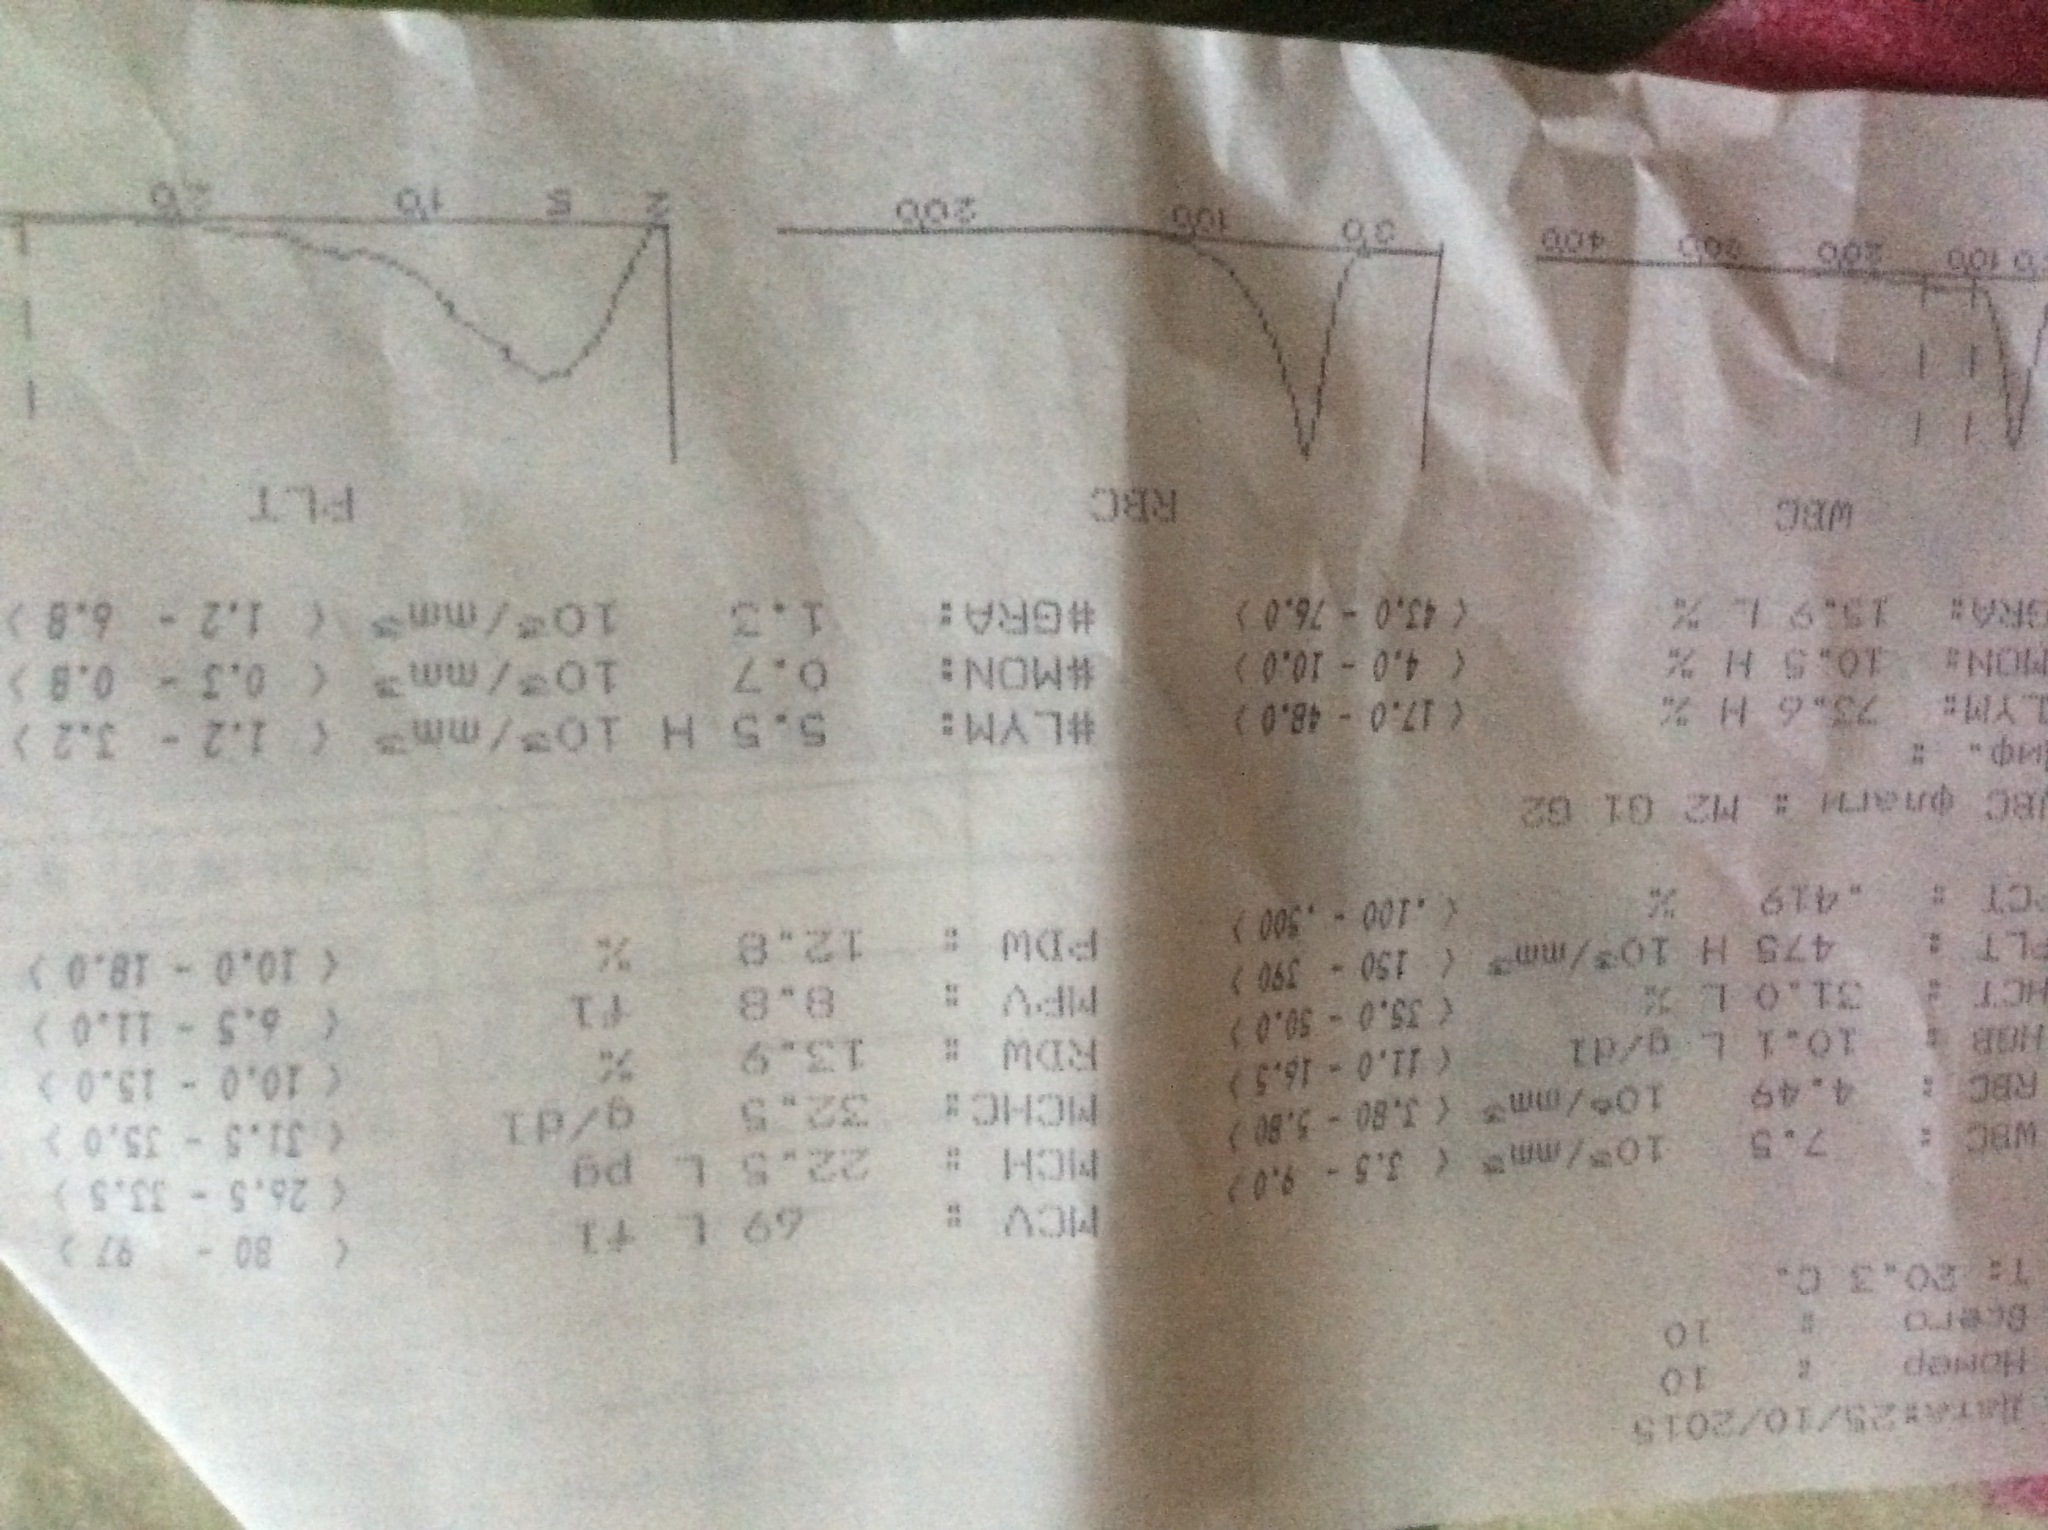 Дата:25/10/2015
Номер : 10
Всего : 10
T: 20.3 C.
WBC : 7.5 10³/mm³ < 3.5 - 9.0 > MCV : 69 L fl < 80 - 97 >
RBC : 4.49 10⁶/mm³ < 3.80 - 5.80 > MCH : 22.5 L pg < 26.5 - 33.5 >
HGB : 10.1 L g/dl < 11.0 - 16.5 > MCHC: 32.5 g/dl < 31.5 - 35.0 >
HCT : 31.0 L % < 35.0 - 50.0 > RDW : 13.9 % < 10.0 - 15.0 >
PLT : 475 H 10³/mm³ < 150 - 390 > MPV : 8.8 fl < 6.5 - 11.0 >
PCT : .419 % < .100 - .500 > PDW : 12.8 % < 10.0 - 18.0 >
WBC флаги : M2 G1 G2
Диф. :
LYM: 73.6 H % < 17.0 - 48.0 > #LYM: 5.5 H 10³/mm³ < 1.2 - 3.2 >
MON: 10.5 H % < 4.0 - 10.0 > #MON: 0.7 10³/mm³ < 0.3 - 0.8 >
GRA: 15.9 L % < 43.0 - 76.0 > #GRA: 1.3 10³/mm³ < 1.2 - 6.8 >
WBC RBC PLT
100 200 300 400 50 100 200 2 5 10 20